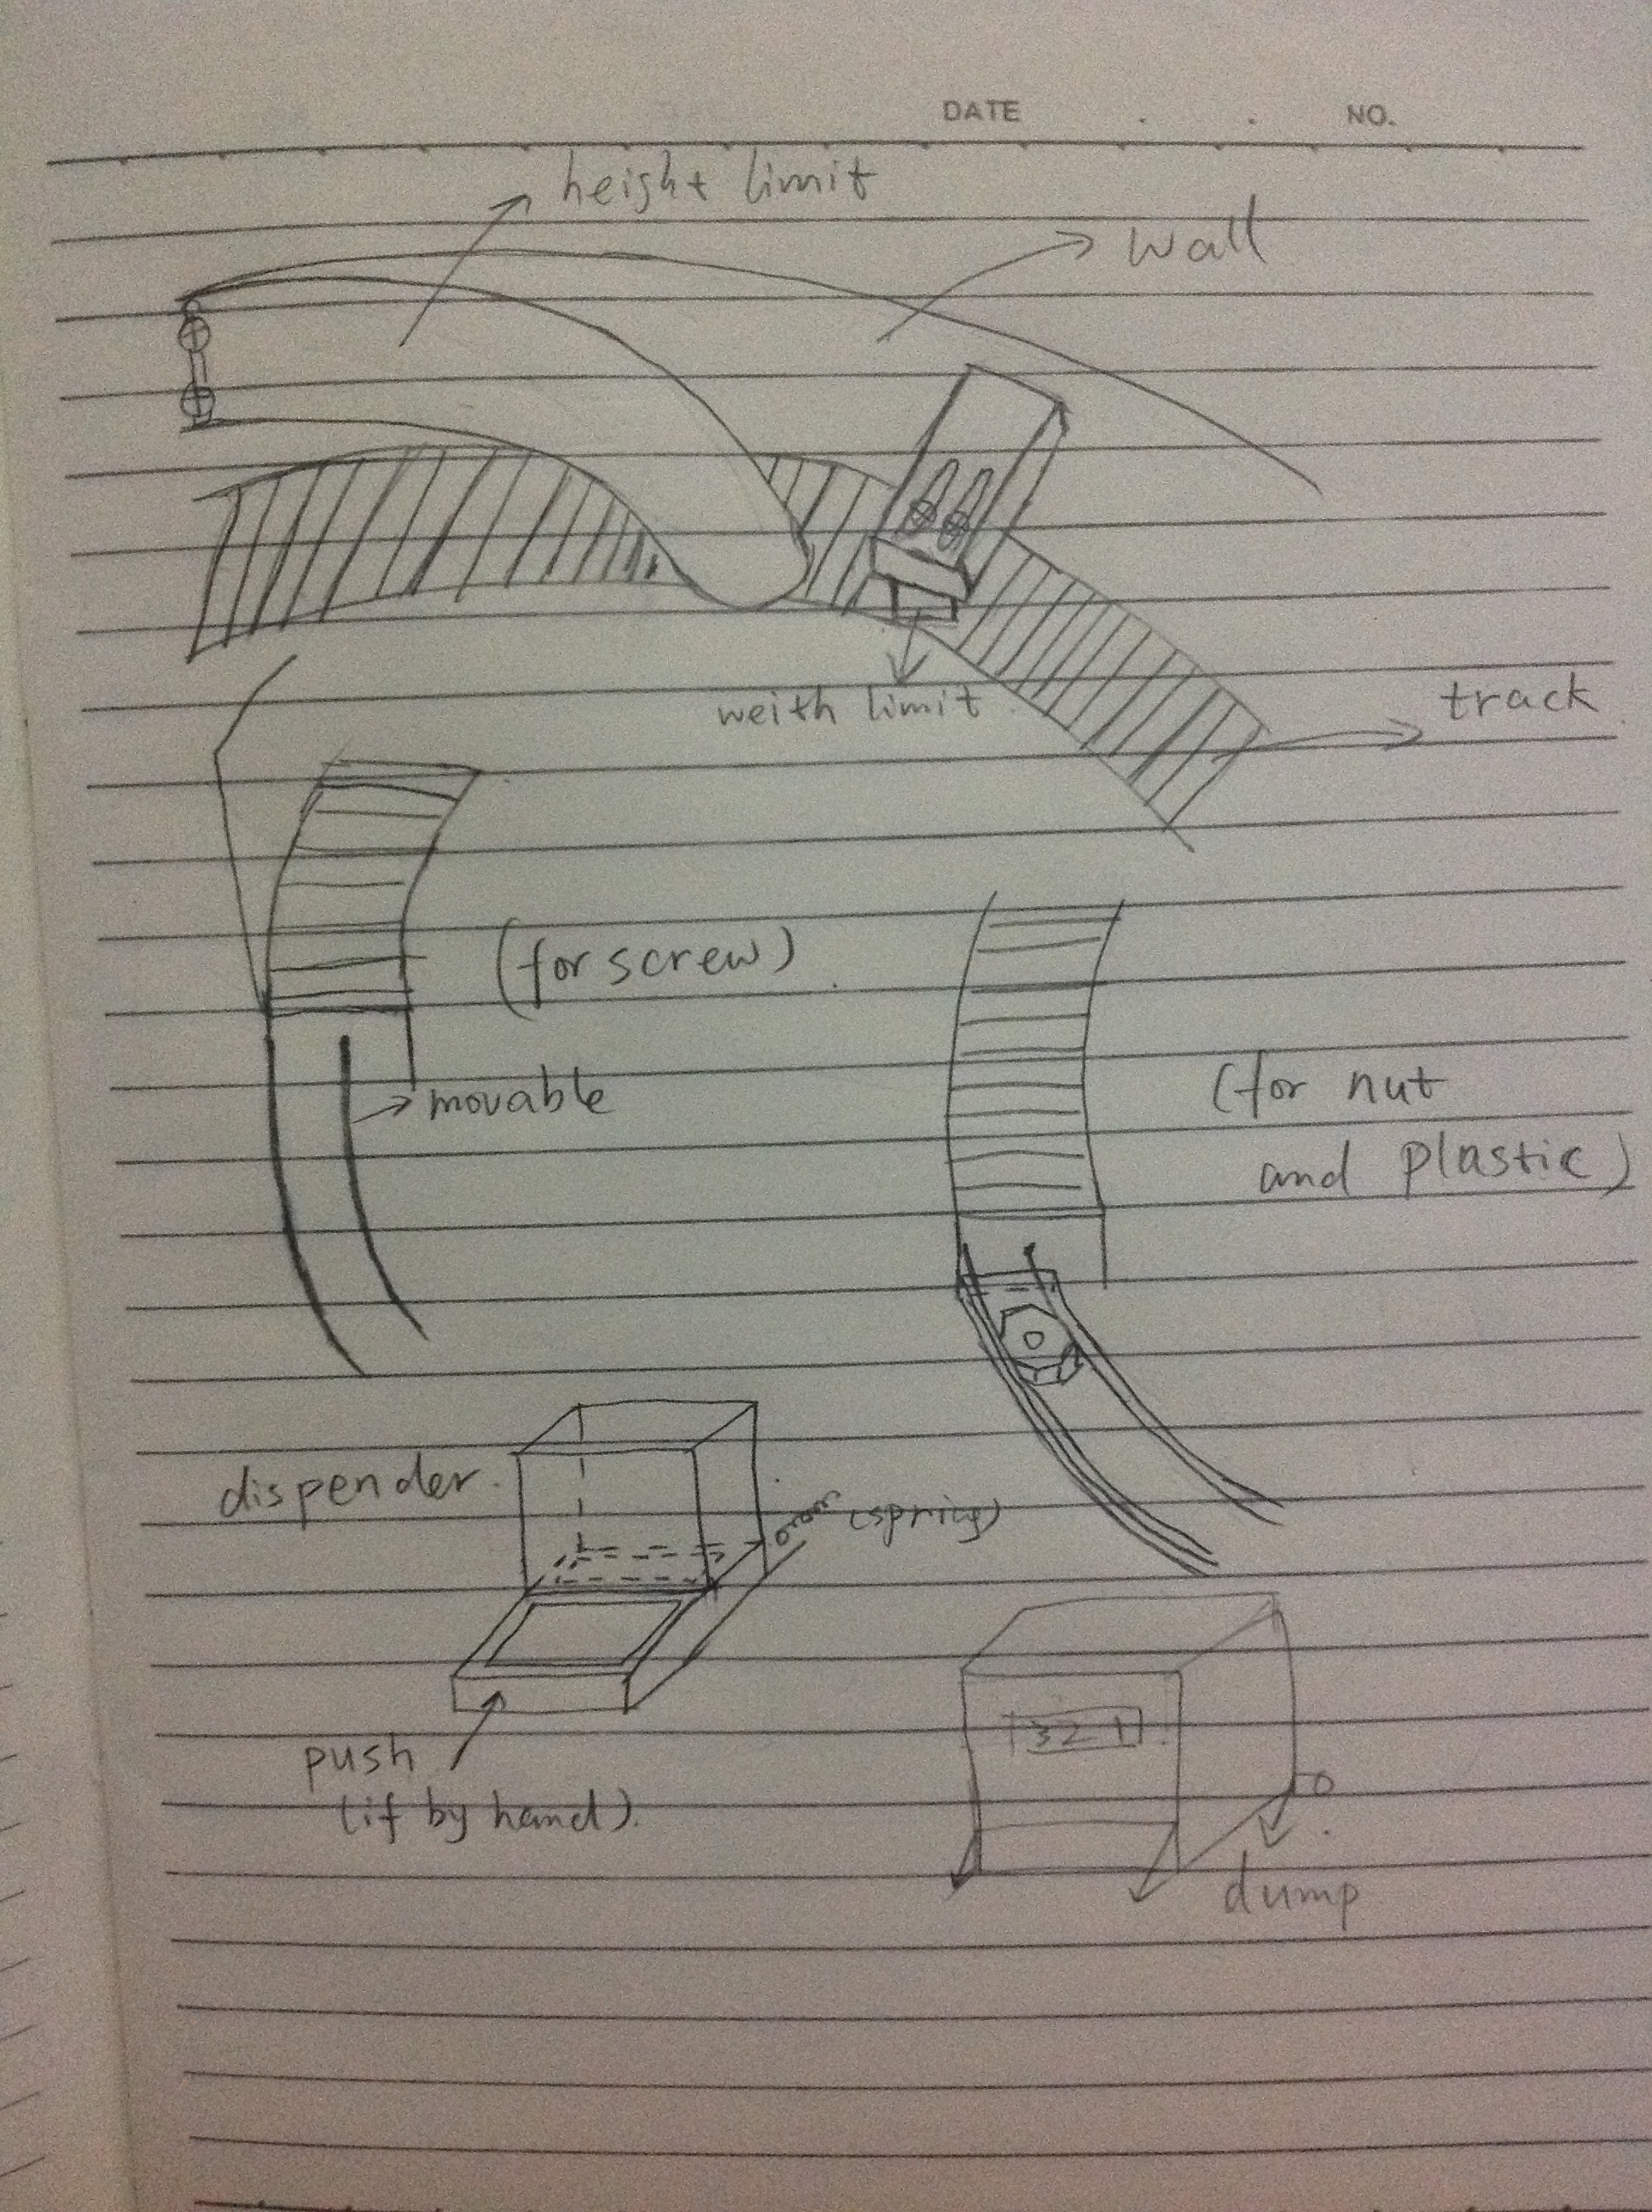 DATE . . NO.
height limit
wall
weith limit
track
(for screw)
movable
(for nut
and plastic)
dispender.
(spring)
push
(if by hand).
321
dump